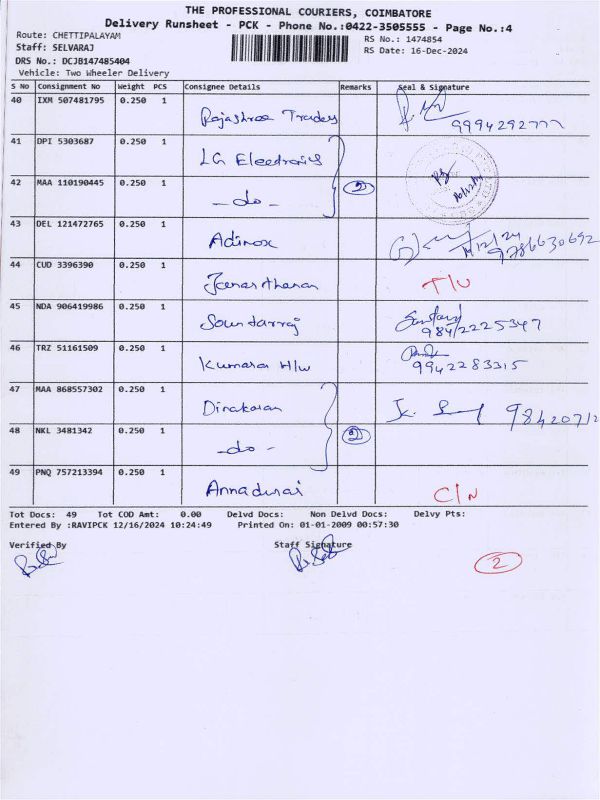 THE PROFESSIONAL COURIERS, COIMBATORE
Delivery Runsheet - PCK - Phone No.:0422-3505555 - Page No.:4
Route: CHETTIPALAYAM RS No.: 1474854
Staff: SELVARAJ RS Date: 16-Dec-2024
DRS No.: DCJB147485404
Vehicle: Two Wheeler Delivery
S No Consignment No Weight PCS Consignee Details Remarks Seal & Signature
40 IXM 507481795 0.250 1 Rajashree Traders 9994292777
41 DPI 5303687 0.250 1 LG Electronics
42 MAA 110190445 0.250 1 -do- 2
43 DEL 121472765 0.250 1 Adinox 9786630692
44 CUD 3396390 0.250 1 Janarthanan T/U
45 NDA 906419986 0.250 1 Soundarraj 9842225347
46 TRZ 51161509 0.250 1 Kumaran H/w 9942283315
47 MAA 868557302 0.250 1 Dinakaran 98420712
48 NKL 3481342 0.250 1 -do- 2
49 PNQ 757213394 0.250 1 Annadurai C/N
Tot Docs: 49 Tot COD Amt: 0.00 Delvd Docs: Non Delvd Docs: Delvy Pts:
Entered By :RAVIPCK 12/16/2024 10:24:49 Printed On: 01-01-2009 00:57:30
Verified By Staff Signature
2